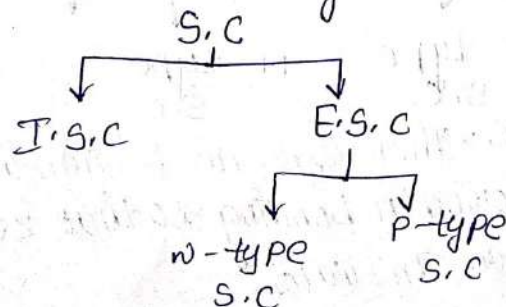 S.C
I.S.C E.S.C
n-type P-type
S.C S.C